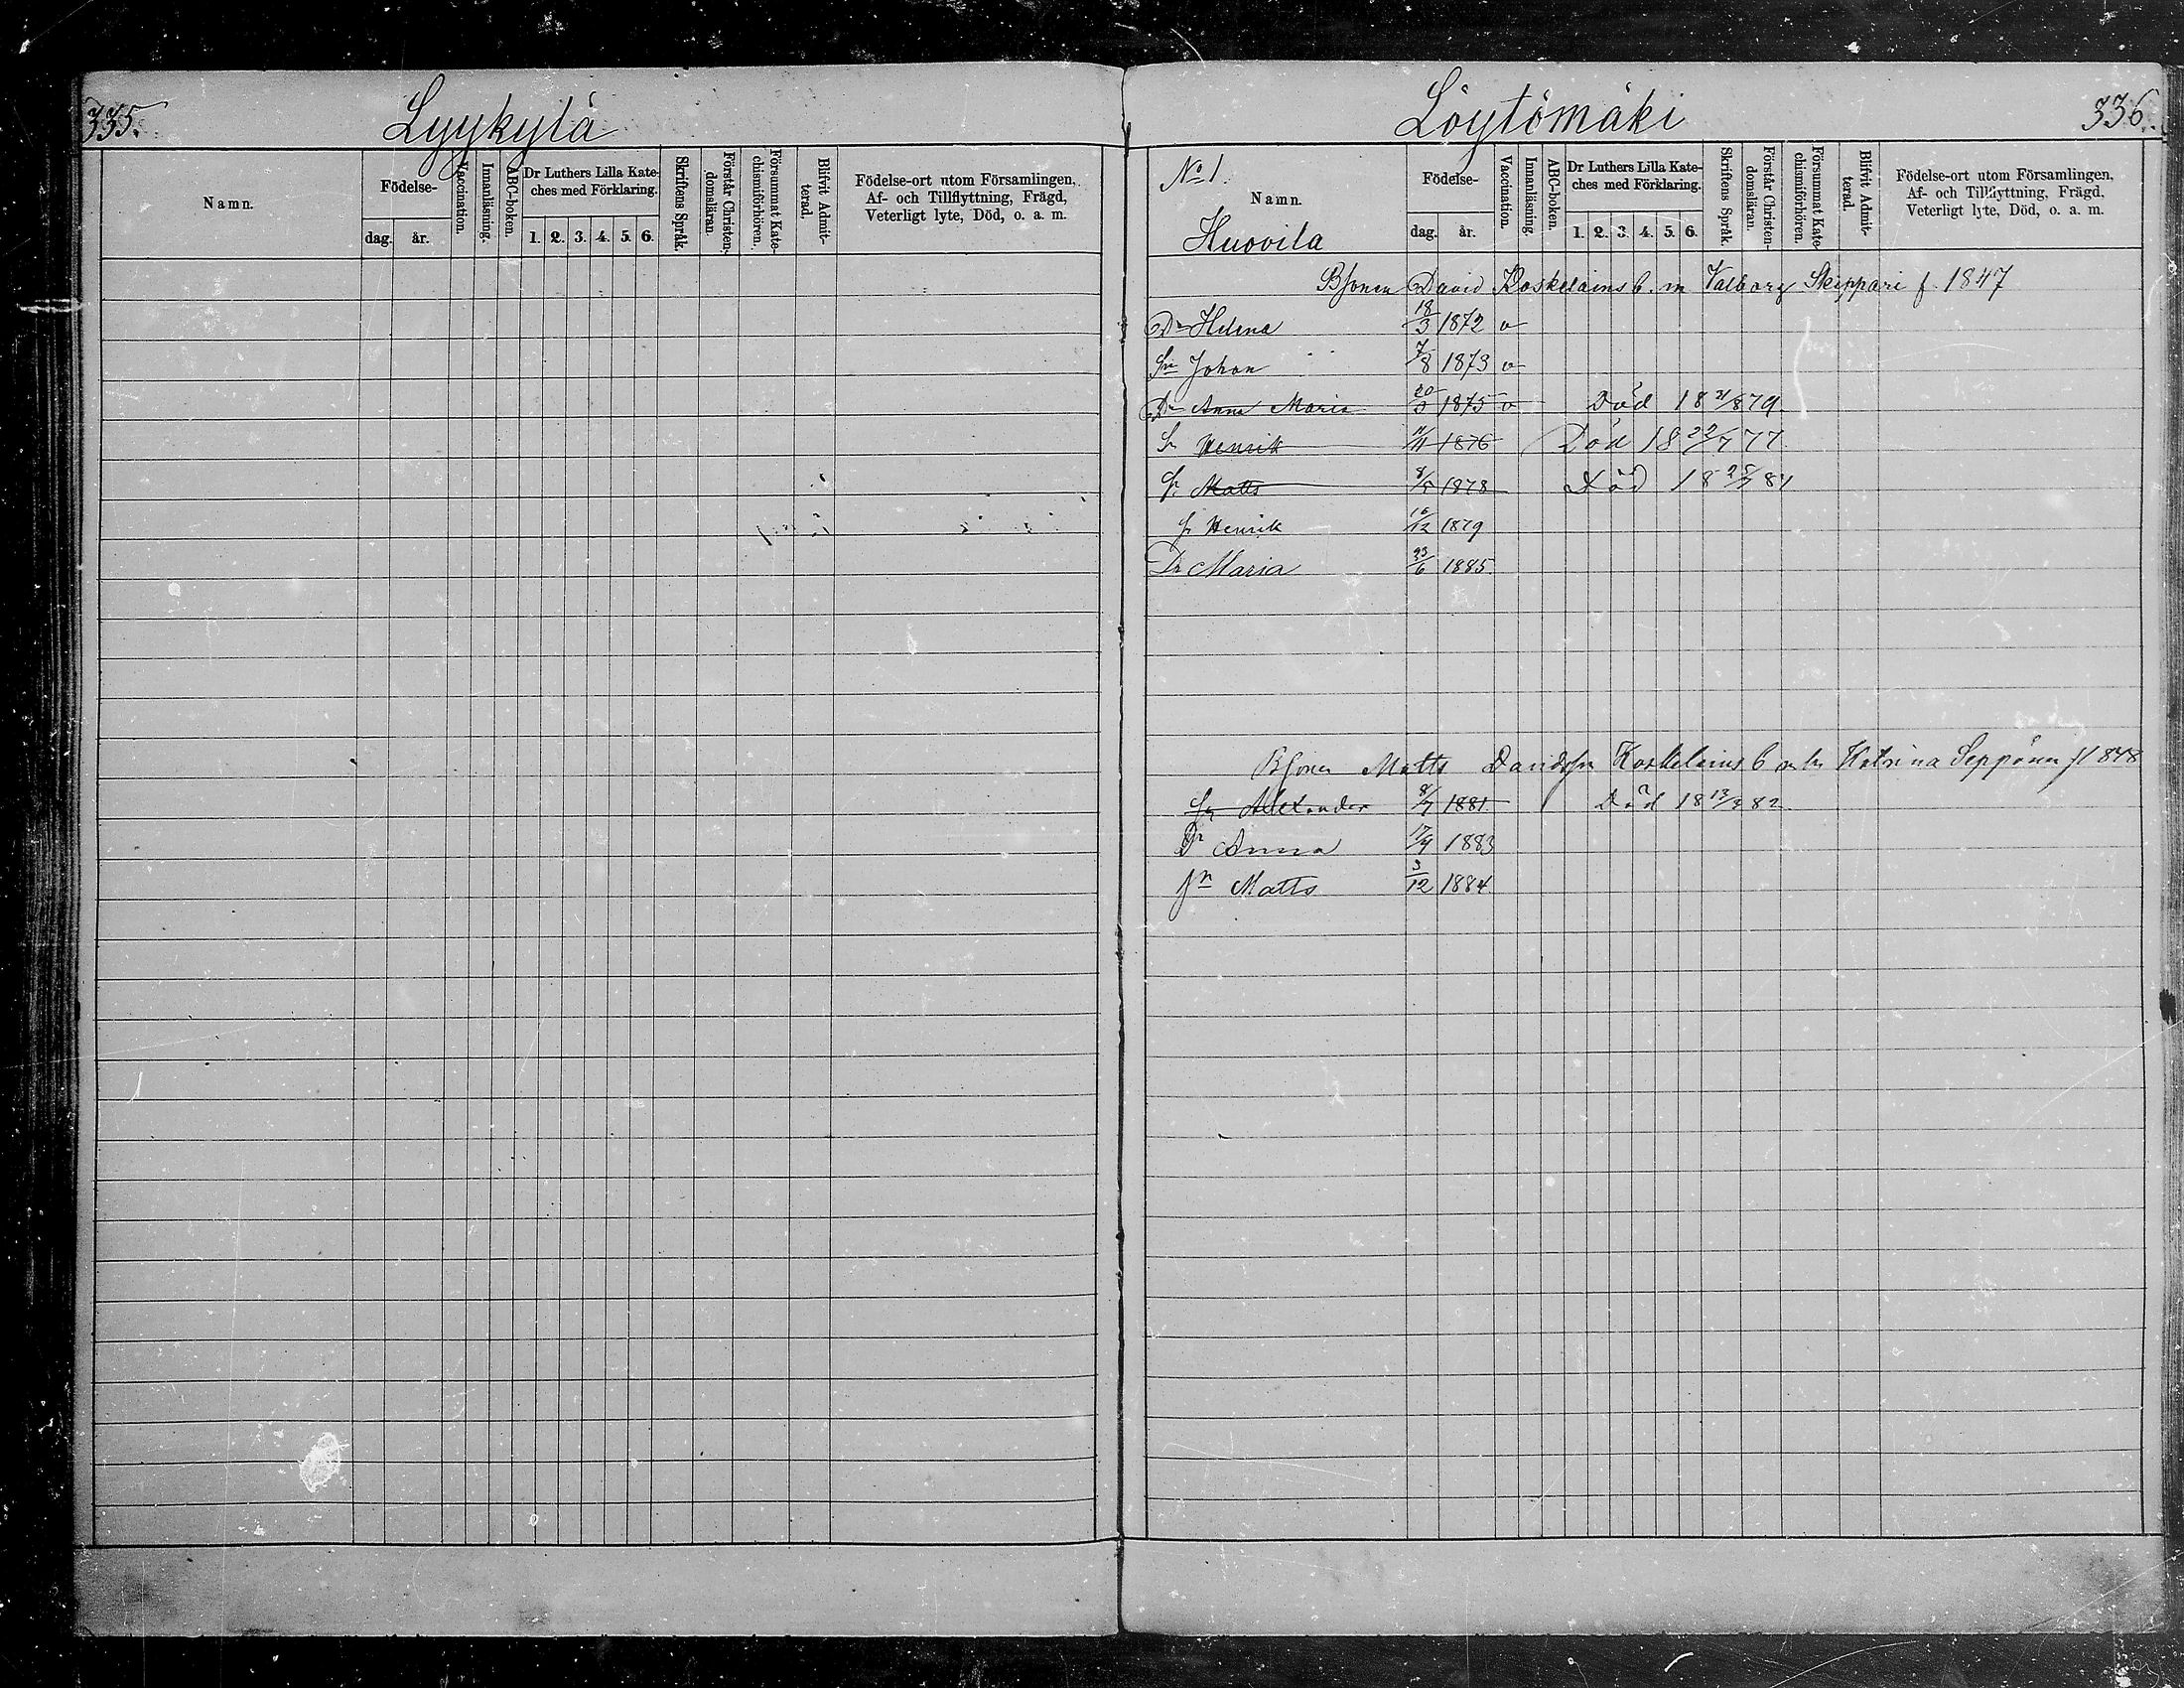 335.
Lyykylä
Namn.
Födelse-
dag. år.
Vaccination.
Innanläsning.
ABC-boken.
Dr Luthers Lilla Kate-
ches med Förklaring.
1. 2. 3. 4. 5. 6.
Skriftens Språk.
Förstår Christen-
domsläran.
Försummat Kate-
chismiförhören.
Blifvit Admit-
terad.
Födelse-ort utom Församlingen,
Af- och Tillflyttning, Frägd,
Veterligt lyte, Död, o. a. m.
Löytömäki
336.
No 1.
Namn.
Huovila
Födelse-
dag. år.
Vaccination.
Innanläsning.
ABC-boken.
Dr Luthers Lilla Kate-
ches med Förklaring.
1. 2. 3. 4. 5. 6.
Skriftens Språk.
Förstår Christen-
domsläran.
Försummat Kate-
chismiförhören.
Blifvit Admit-
terad.
Födelse-ort utom Församlingen,
Af- och Tillflyttning, Frägd,
Veterligt lyte, Död, o. a. m.
Bsonen David Koskelains b. m Valborg Skippari f. 1847
Dr Helena 18/3 1872 v
Sn Johan 7/8 1873 v
Dr Anna Maria 20/5 1875 v Död 18 21/8 79.
Sn Henrik 11/11 1876 Död 18 22/7 77
Sn Matts 8/5 1878 Död 18 25/7 81
Sn Henrik 16/12 1879
Dr Maria 23/6 1885.
Bsonen Matts Davidsson Koskelains b Katrina Seppönen f 1848
Sn Alexander 8/7 1881 Död 18 13/3 82
Dr Anna 17/9 1883
Sn Matts 3/12 1884